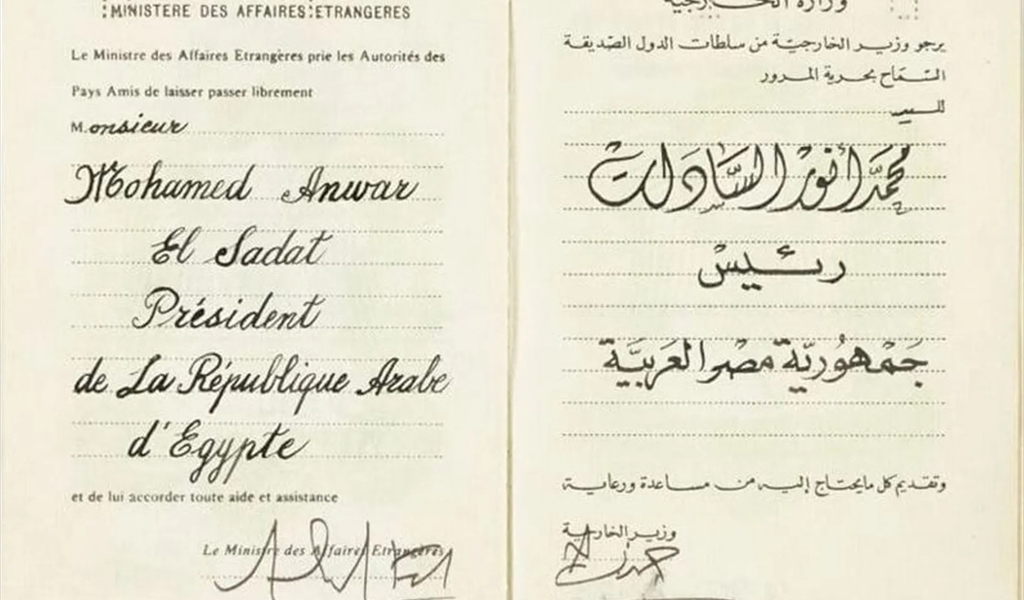 MINISTERE DES AFFAIRES ETRANGERES
Le Ministre des Affaires Etrangères prie les Autorités des
Pays Amis de laisser passer librement
M.onsieur
Mohamed Anwar
El Sadat
Président
de La République Arabe
d'Egypte
et de lui accorder toute aide et assistance
Le Ministre des Affaires Etrangères
وزارة الخارجية
يرجو وزير الخارجية من سلطات الدول الصديقة
السماح بحرية المرور
للسيد
محمد أنور السادات
رئيس
جمهورية مصر العربية
وتقديم كل مايحتاج إليه من مساعدة ورعاية
وزير الخارجية